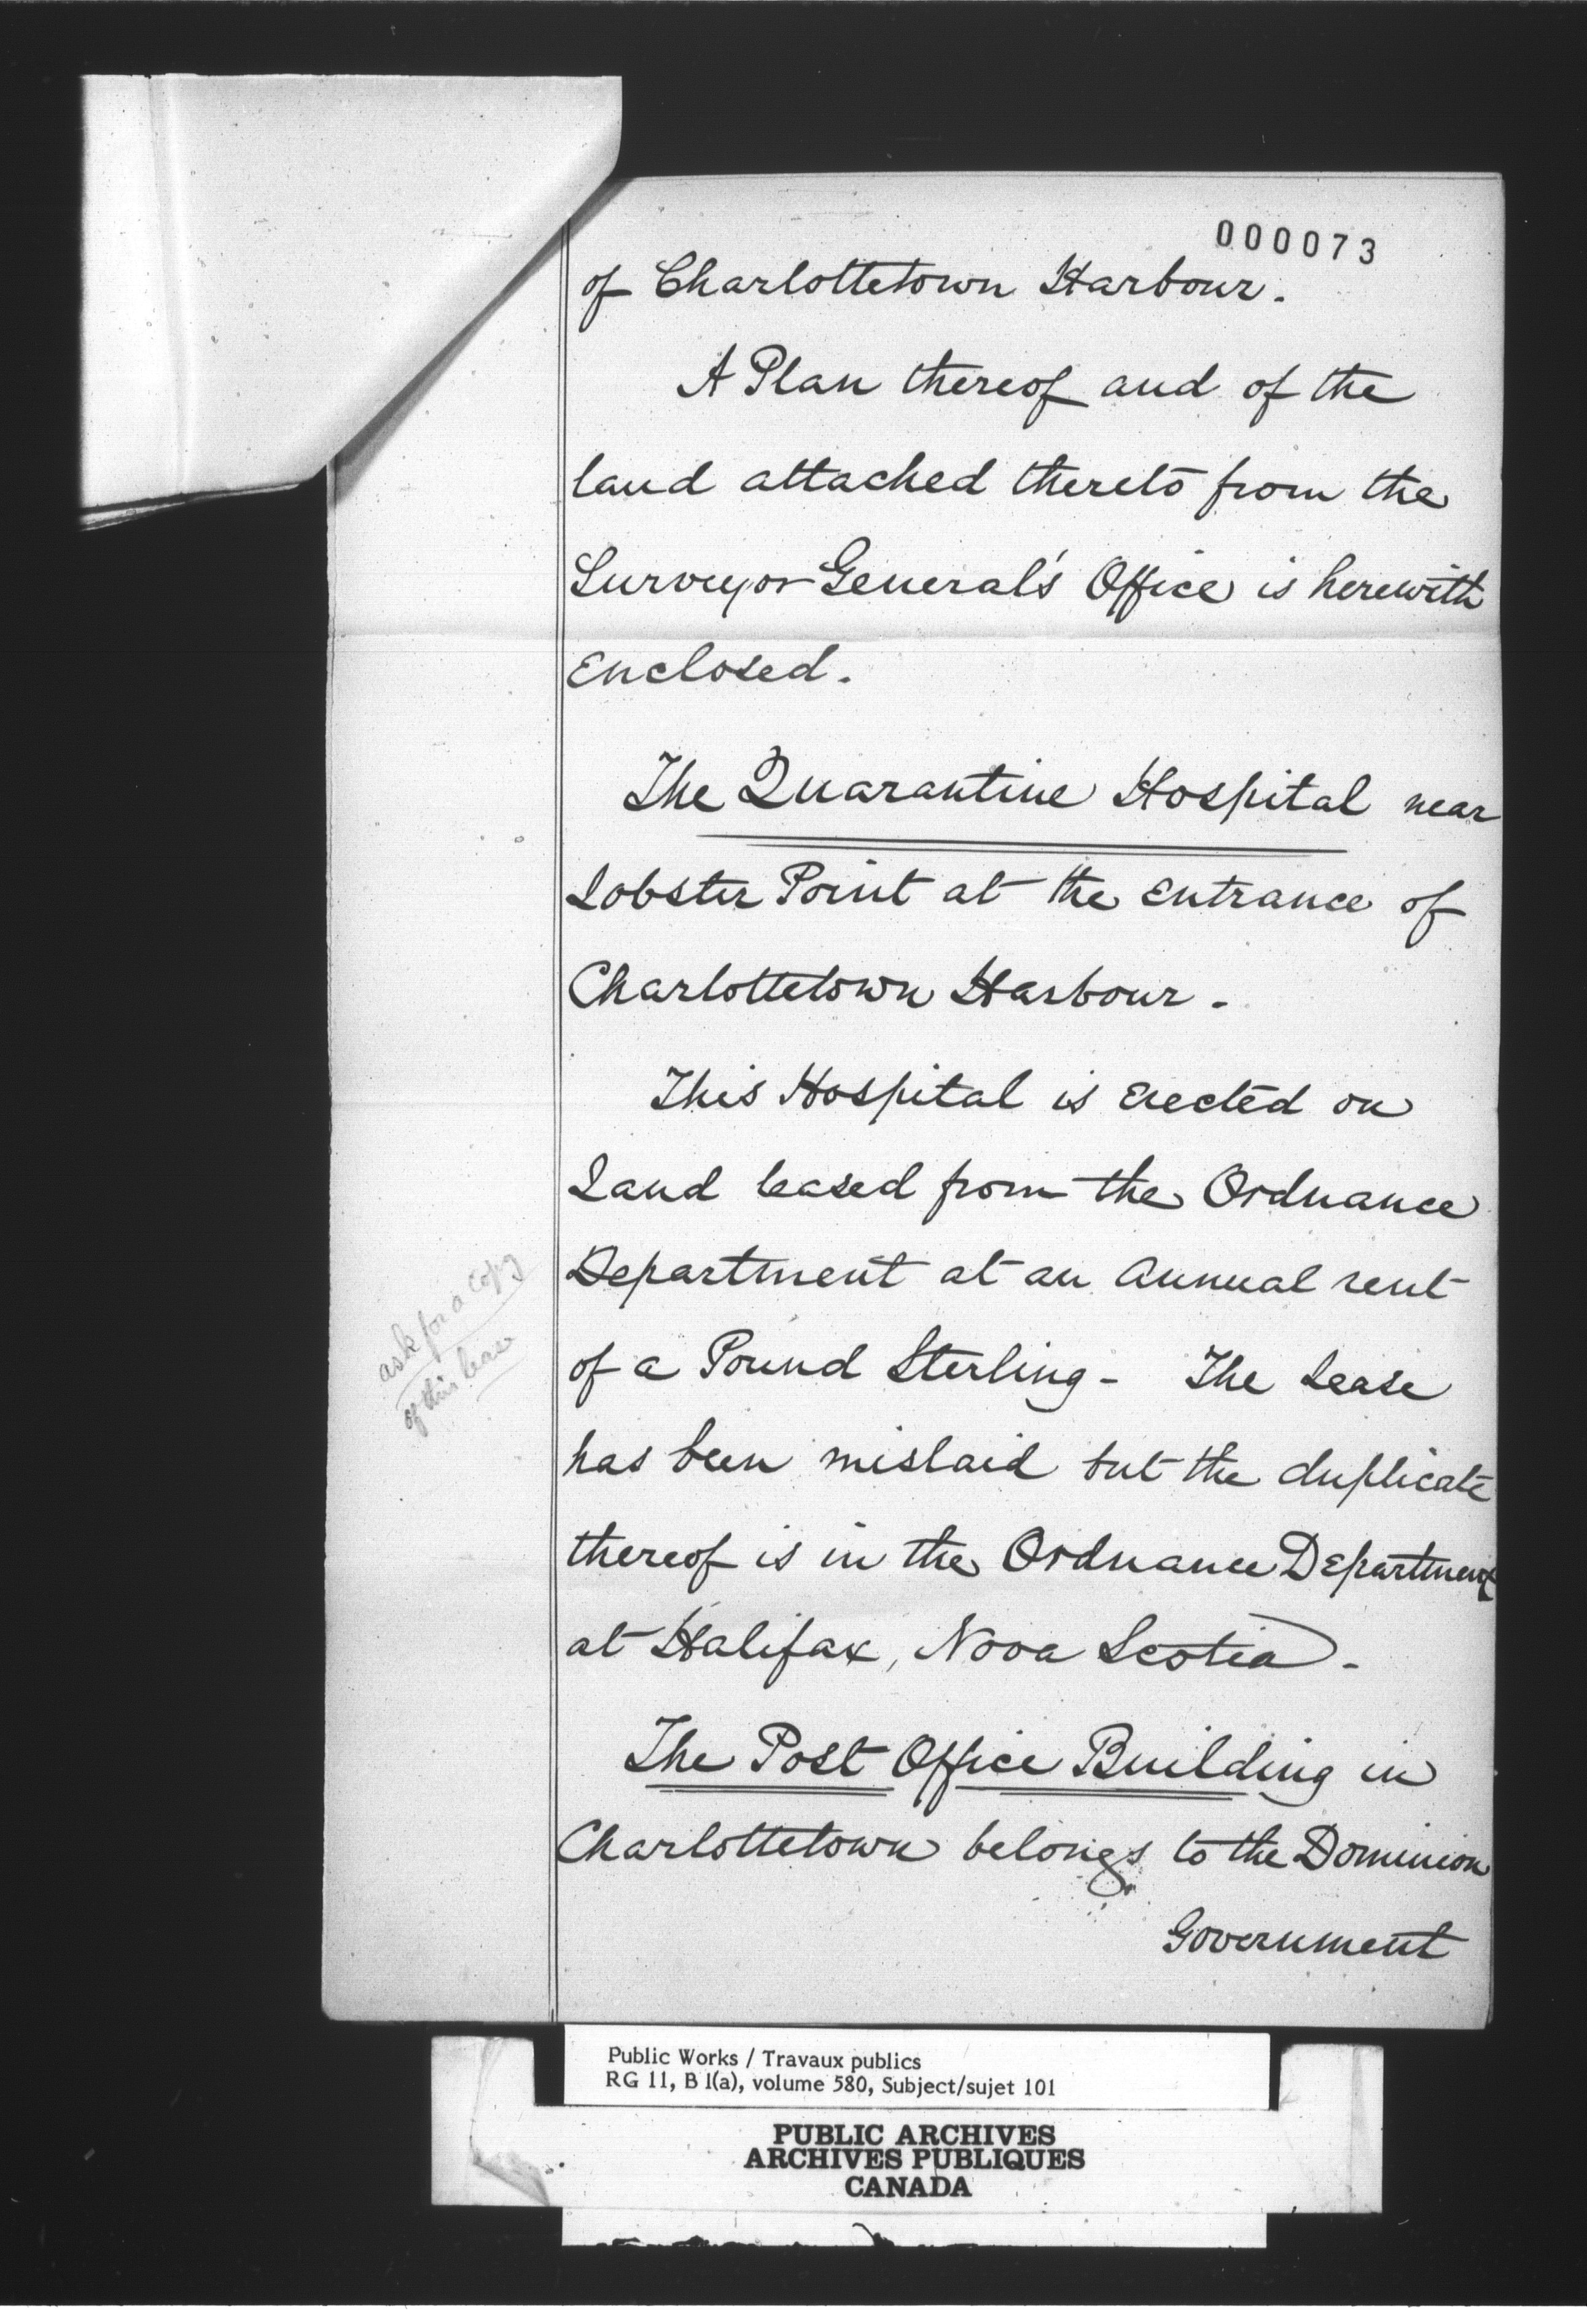 000073
of Charlottetown Harbour.
A Plan thereof and of the
land attached thereto from the
Surveyor General's Office is herewith
Enclosed.
The Quarantine Hospital near
Lobster Point at the Entrance of
Charlottetown Harbour.
This Hospital is Erected on
Land leased from the Ordnance
Department at an Annual rent
of a Pound Sterling - The Lease
has been mislaid but the duplicate
thereof is in the Ordnance Department
at Halifax, Nova Scotia.
The Post Office Building in
Charlottetown belongs to the Dominion
Government
ask for a copy
of this lease
Public Works / Travaux publics
RG 11, B 1(a), volume 580, Subject/sujet 101
PUBLIC ARCHIVES
ARCHIVES PUBLIQUES
CANADA